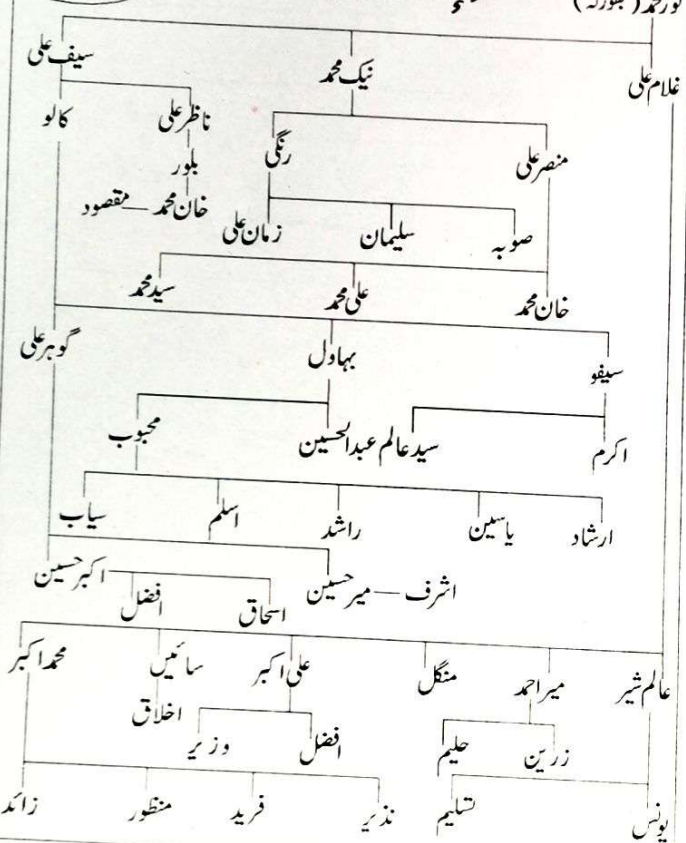 نورمحمد (بھورلہ)
غلام علی نیک محمد سیف علی
منصر علی رنگی ناظر علی کالو
بلور
صوبہ سلیمان زمان علی خان محمد — مقصود
خان محمد علی محمد سید محمد
سیفو بہاول گوہر علی
اکرم سید عالم عبدالحسین محبوب
ارشاد یاسین راشد اسلم سیاب
اشرف — میر حسین اکبر حسین
اسحاق افضل
عالم شیر میر احمد منگل علی اکبر سائیں محمد اکبر
زرین حلیم افضل وزیر اخلاق
یونس تسلیم نذیر فرید منظور زائد